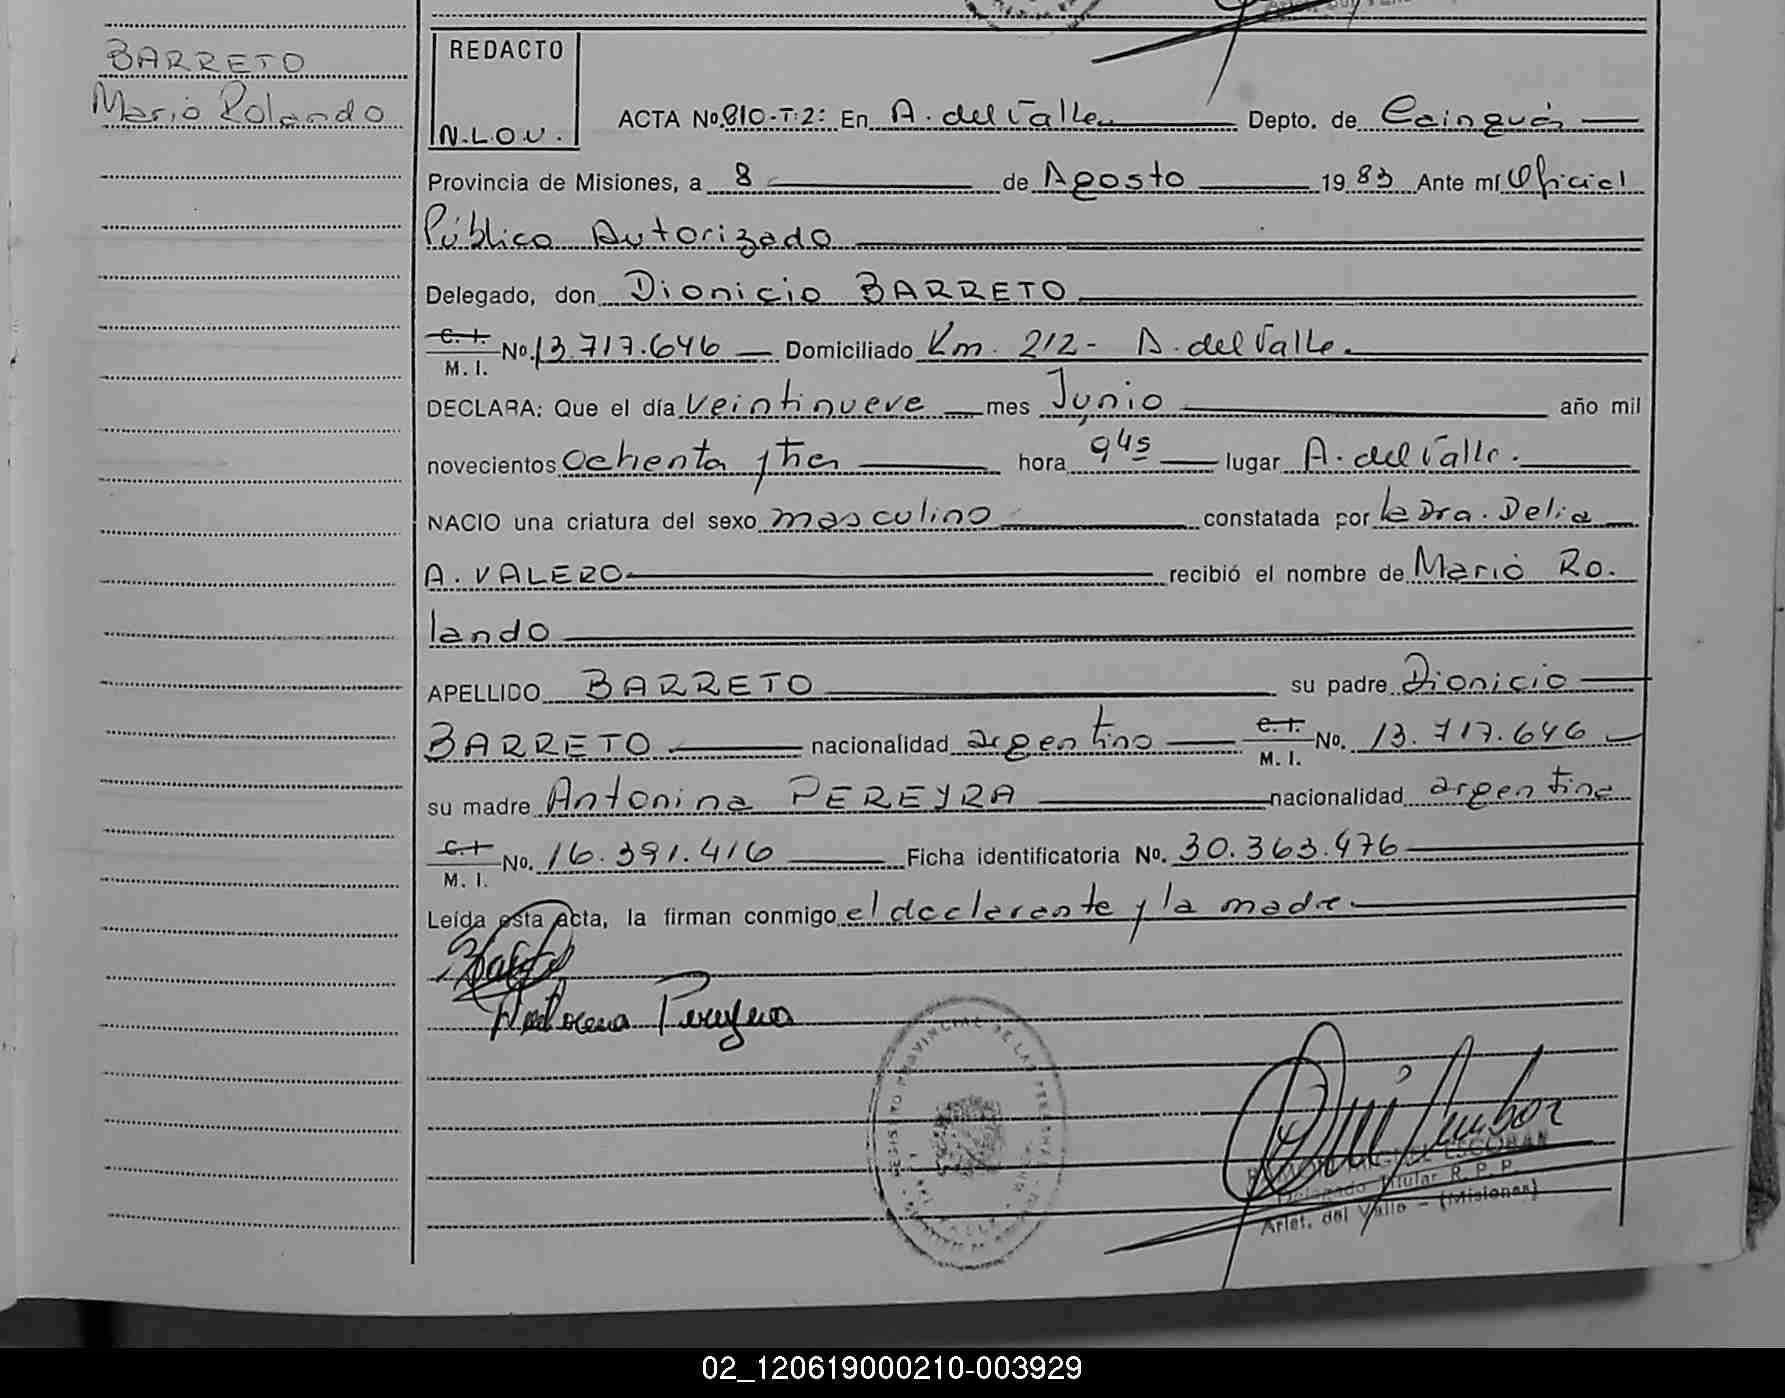 BARRETO
Mario Rolando
REDACTO
N.L.O.V.
ACTA No. 810-T:2: En A. del Valle Depto. de Cainguás
Provincia de Misiones, a 8 de Agosto 1983 Ante mí Oficial
Público Autorizado
Delegado, don Dionicio BARRETO
C. I. M. I. No. 13.717.646 Domiciliado Km. 212- A. del Valle.
DECLARA: Que el día veintinueve mes Junio año mil
novecientos ochenta y tres hora 9 45 lugar A. del Valle.
NACIO una criatura del sexo masculino constatada por la Dra. Delia
A. VALERO recibió el nombre de Mario Ro.
lando
APELLIDO BARRETO su padre Dionicio
BARRETO nacionalidad argentino C. I. M. I. No. 13.717.646
su madre Antonina PEREYRA nacionalidad argentina
C. I. M. I. No. 16.391.416 Ficha identificatoria No. 30.363.476
Leída esta acta, la firman conmigo el declarante y la madre
Pereyra
REGISTRO PROVINCIAL DE LAS PERSONAS
MIGUEL ESCOBAR
Delegado Titular R. P. P.
Arist. del Valle - (Misiones)
02_120619000210-003929